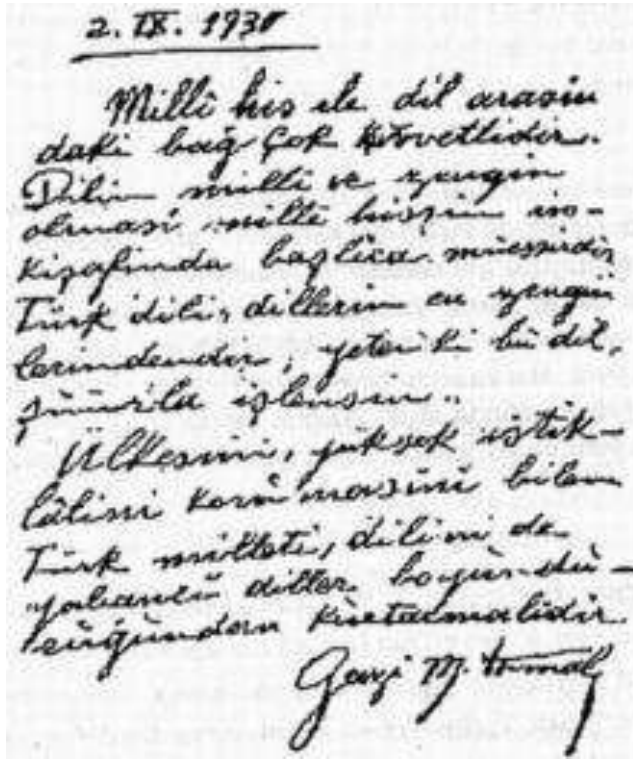 2. IX. 1930
Millî his ile dil arasın
daki bağ çok kuvvetlidir.
Dilin millî ve zengin
olması millî hissin in-
kişafında başlıca müessirdir
Türk dili, dillerin en zengin
lerindendir, yeter ki bu dil,
şuurla işlensin.
Ülkesini, yüksek istik-
lâlini korumasını bilen
Türk milleti, dilini de
yabancı diller boyundu-
ruğundan kurtarmalıdır.
Gazi M. Kemal